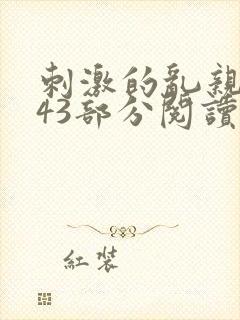 刺激的乱親
43部分閱讀
紅装